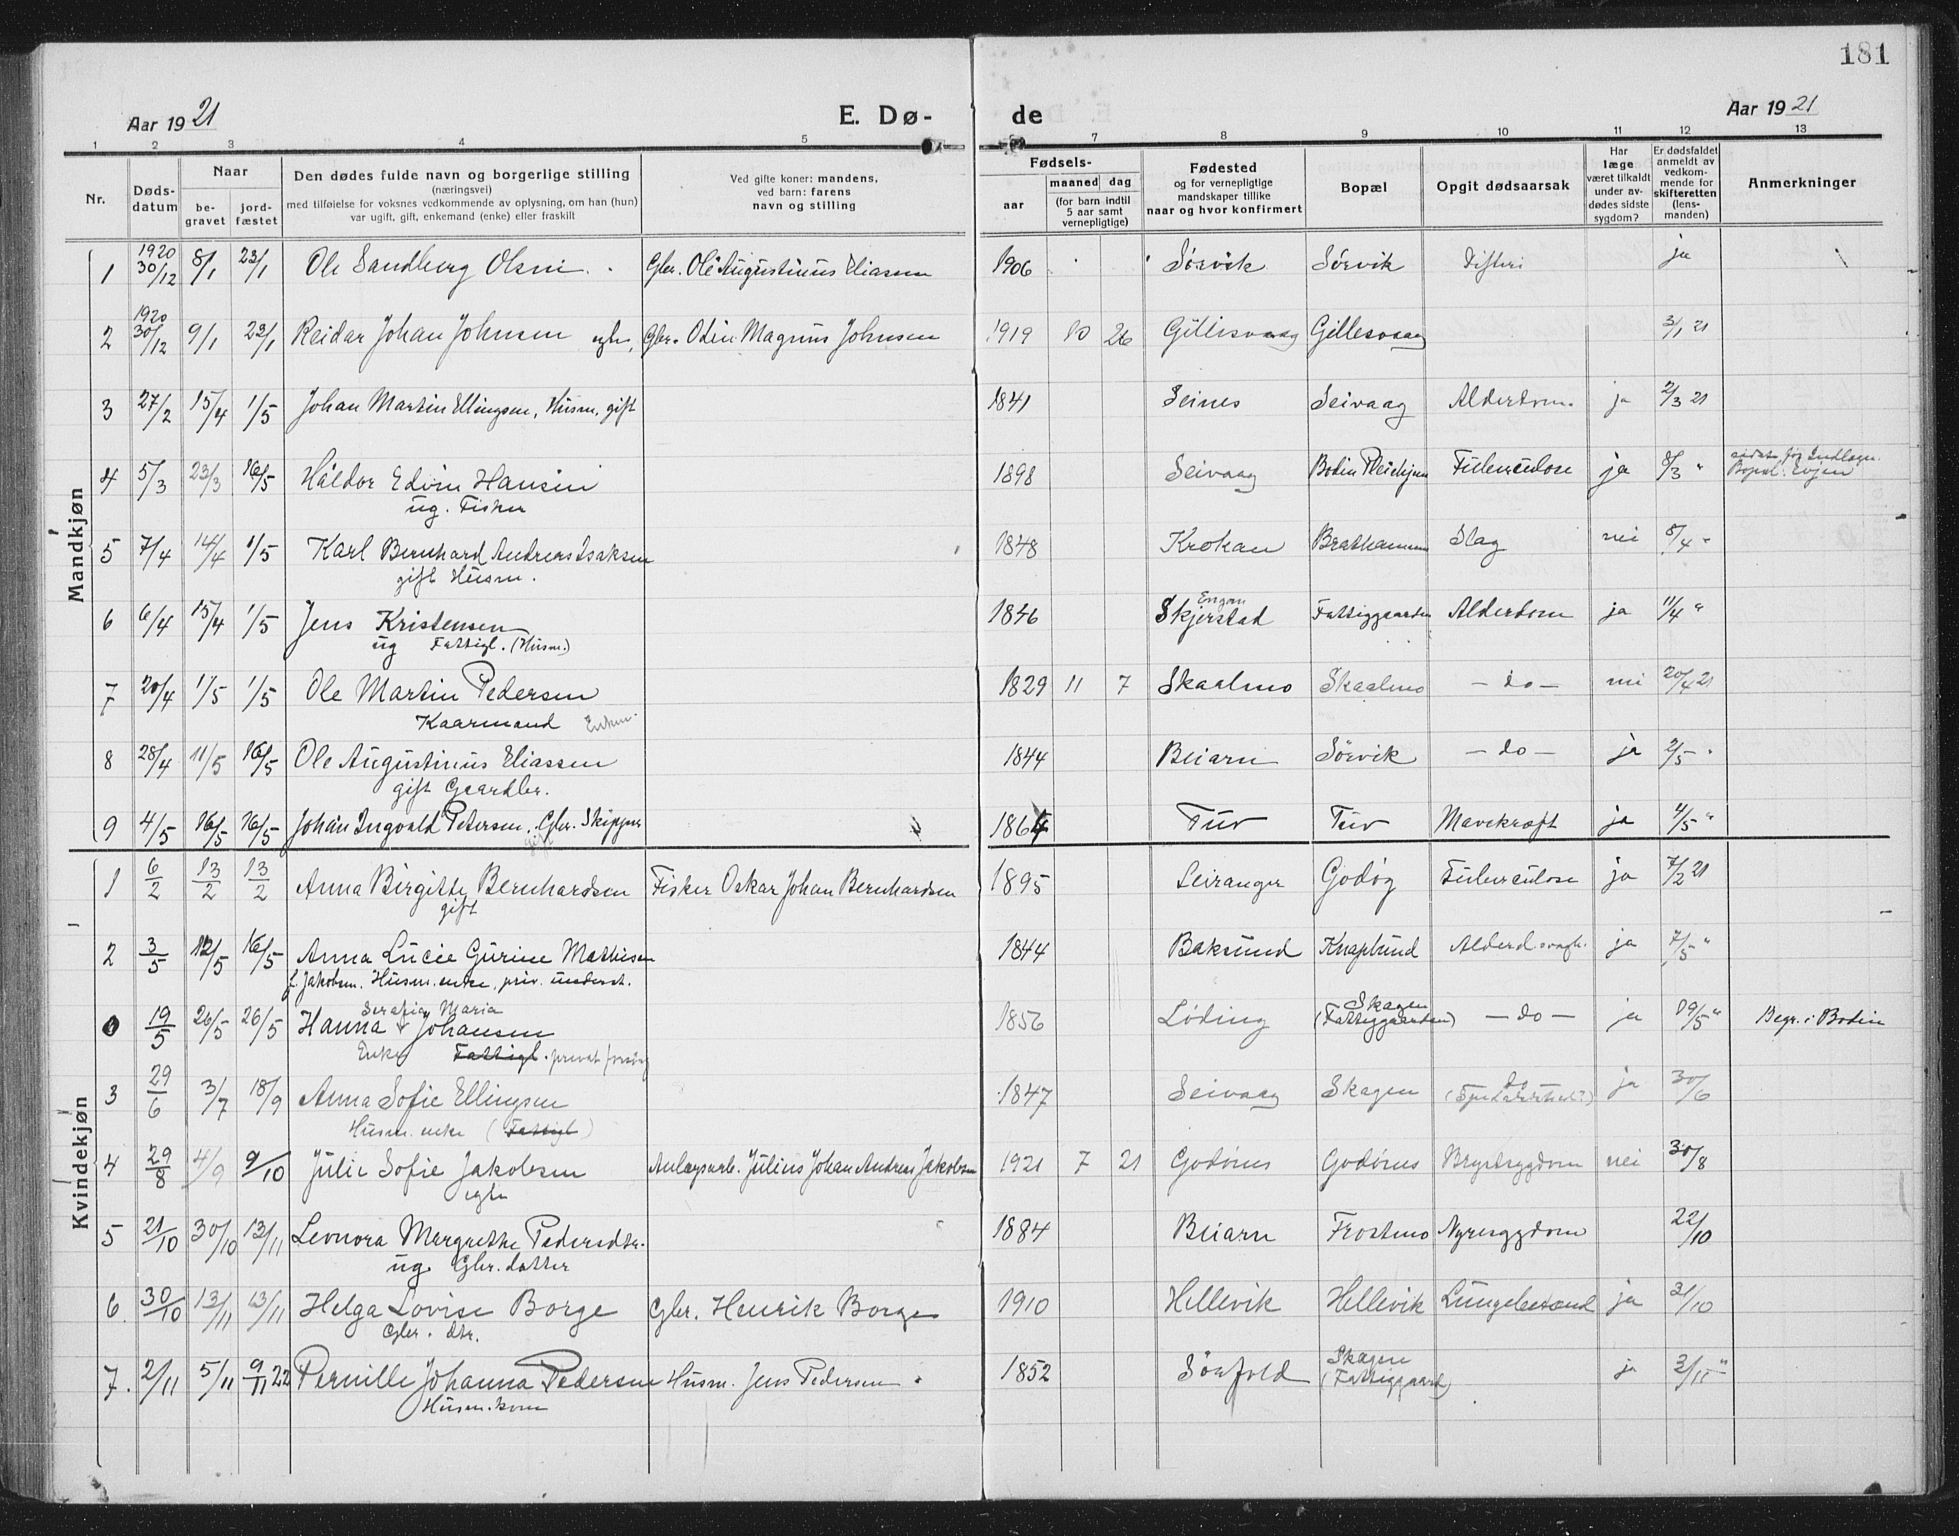 181
Aar 1921 E. Dø- de Aar 1921
1 2 3 4 5 7 8 9 10 11 12 13
Nr. Døds-datum Naar be-gravet jord-fæstet Den dødes fulde navn og borgerlige stilling (næringsvei) med tilføielse for voksnes vedkommende av oplysning, om han (hun) var ugift, gift, enkemand (enke) eller fraskilt Ved gifte koner: mandens, ved barn: farens navn og stilling Fødsels- aar maaned dag (for barn indtil 5 aar samt vernepligtige) Fødested og for vernepligtige mandskaper tillike naar og hvor konfirmert Bopæl Opgit dødsaarsak Har læge været tilkaldt under av-dødes sidste sygdom? Er dødsfaldet anmeldt av vedkom-mende for skifteretten (lens-manden) Anmerkninger
Mandkjøn
1 1920 30/12 8/1 23/1 Ole Sandberg Olsen Gbr. Ole Augustinus Eliassen 1906 Sørvik Sørvik Difteri ja
2 1920 30/12 9/1 23/1 Reidar Johan Johnsen egte, Gbr. Odin Magnus Johnsen 1919 10 26 Gillesvaag Gillesvaag 3/1 21
3 27/2 15/4 1/5 Johan Martin Ellingsen, Husm, gift 1841 Seines Seivaag Alderdom ja 2/3 21
4 5/3 23/3 16/5 Haldor Edvin Hansen 1898 Seivaag Bodin Pleiehjem Tuberculose ja 8/3 " sidste før Indlagn.
ug. Fisker Bopæl: Evjen
5 7/4 14/4 1/5 Karl Bernhard Andreas Isaksen 1848 Krokan Brathammeren Slag nei 8/4 "
gift Husm.
6 6/4 15/4 1/5 Jens Kristensen 1846 Engan Skjerstad Fattiggaarden Alderdom ja 11/4 "
ug Fattigl. (Husm.)
7 20/4 1/5 1/5 Ole Martin Pedersen 1829 11 7 Skaalmo Skaalmo - do - nei 20/4 21
Kaarmand Enkem.
8 28/4 11/5 16/5 Ole Augustinus Eliassen 1844 Beiarn Sørvik - do - ja 2/5 "
gift Gaardbr.
9 4/5 16/5 16/5 Johan Ingvald Petersen, Gbr. Skipper gift 1864 Tuv Tuv Mavekræft ja 4/5 "
Kvindekjøn
1 6/2 13/2 13/2 Anna Birgitte Bernhardsen Fisker Oskar Johan Bernhardsen 1895 Leiranger Godøy Tuberculose ja 7/2 21
gift
2 3/5 12/5 16/5 Anna Lucie Gurine Mathisen 1844 Baksund Knaplund Alderd.svagh. ja 7/5 "
f. Jakobsen. Husm. enke, priv. underst.
19/5 26/5 26/5 Hanna Serafia Maria Johansen 1856 Løding Skagen (Fattiggaarden) - do - ja 19/5 " Begr. i Bodin
Enke Fattigl. privat forsørg
3 29/6 3/7 18/9 Anna Sofie Ellingsen 1847 Seivaag Skagen do ja 30/6
Husm. enke (Fattigl)
4 29/8 4/9 9/10 Julie Sofie Jakobsen Anlægsarb. Julius Johan Andreas Jakobsen 1921 7 21 Godønes Godønes Brystsygdom nei 30/8
egte
5 21/10 30/10 13/11 Leonora Margrethe Pedersdtr. 1884 Beiarn Frostmo Nyresygdom 22/10
ug. Gbr. datter
6. 30/10 13/11 13/11 Helga Lovise Borge Gbr. Henrik Borge 1910 Hellevik Hellevik Lungebetænd ja 31/10
Gbr. dtr.
7. 2/11 5/11 9/11 22 Pernille Johanna Pedersen Husm. Jens Pedersen 1852 Sørfold Skagen (Fattiggaard) ja 3/11 "
Husm. kone